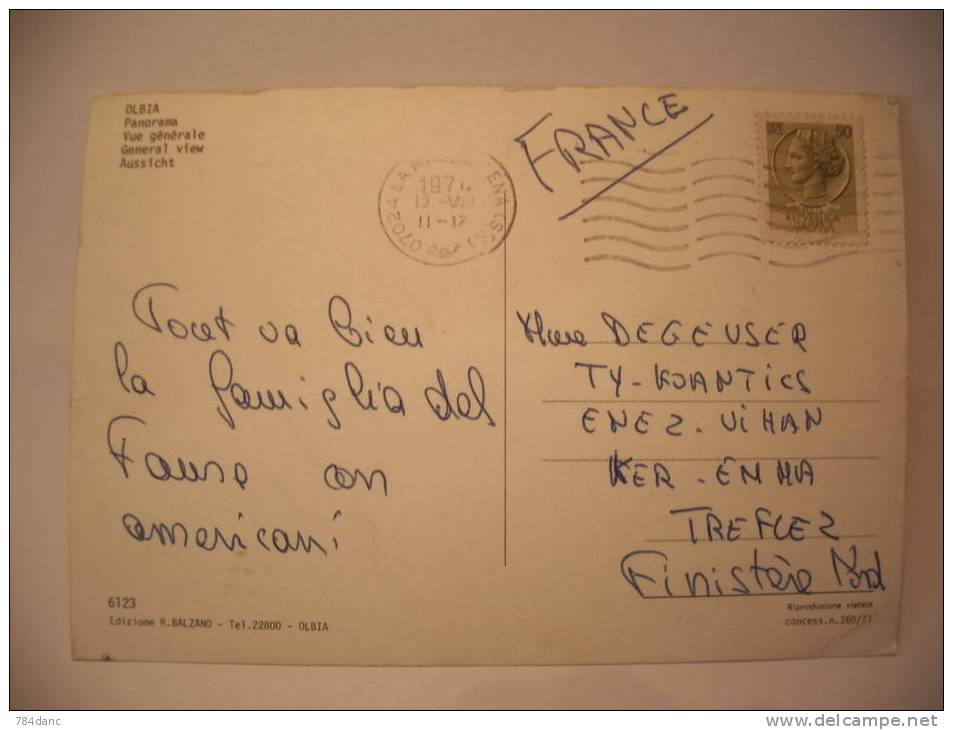 OLBIA
Panorama
Vue générale
General view
Aussicht
FRANCE
07024 LA MADDALENA (SS)
11-12
LIRE 50
REPUBBLICA
ITALIANA
Tout va bien
la famiglia del
con
americani
Mme DEGEUSER
TY-KOANTICS
ENEZ-VIHAN
KER-EMMA
TREFLEZ
Finistère Nord
6123
Edizione R.BALZANO - Tel.22800 - OLBIA
Riproduzione vietata
concess.n.360/77
784danc
www.delcampe.net